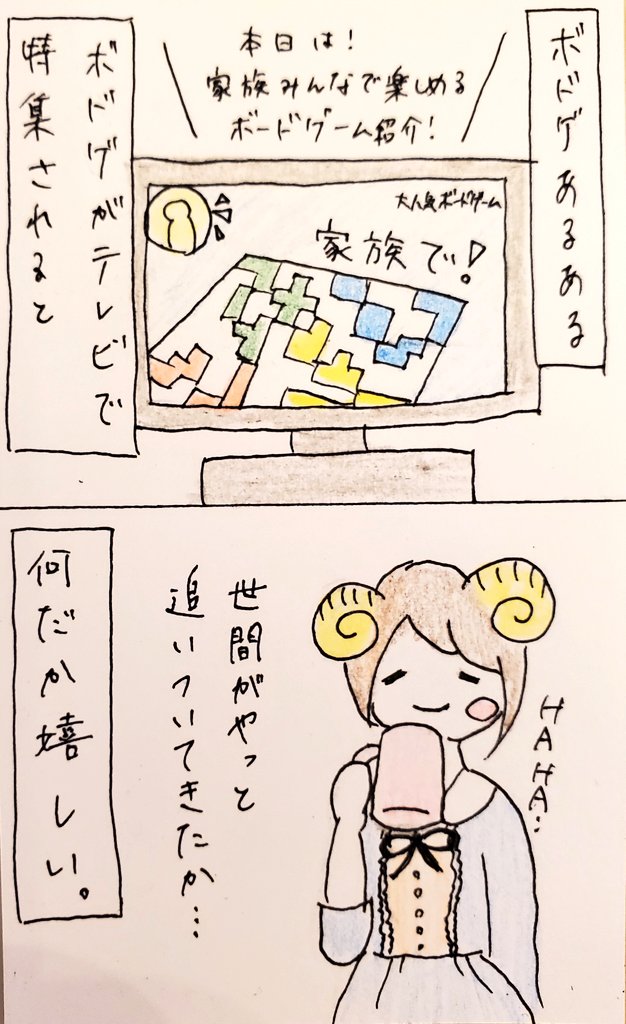 ボドゲあるある
本日は!
家族みんなで楽しめる
ボードゲーム紹介!
ボドゲがテレビで
特集されると
大人気ボードゲーム
家族で!
世間がやっと
追いついてきたか…
HAHA…
何だか嬉しい。